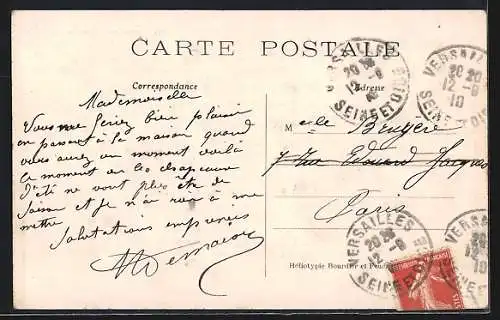 CARTE POSTALE
Correspondance
Adresse
Mademoiselle
Vous me feriez bien plaisir
en passant à la maison quand
vous aurez un moment voilà
le moment où les chapeaux
d'été ne vont plus être de
saison et je n'ai rien à me
mettre
Salutations empressées
Melle Bruyère
7 Rue Edouard Jacques
Paris
Héliotypie Bourdier et
VERSAILLES
20 30
12 -9
10
SEINE ET OISE
VERSAILLES
20 30
12 -9
10
SEINE ET OISE
VERSAILLES
20 30
12 -9
VERSAILLES
12
10